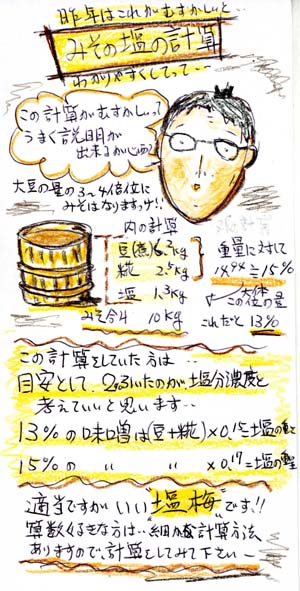 昨年はこれがむずかしいと‥
みその塩の計算
わかりやすくしてって‥
この計算がむずかしいって
うまく説明が
出来るか心配?
大豆の量の3〜4倍位に
みそはなりますッ!!
内の計算
豆(煮)6.2kg
糀 2.5kg
塩 1.3kg
みそ合計 10kg
重量に対して
14.94≒15%
この位の量
これだと 13%
この計算をしていた方は‥
目安として、2引いたのが、塩分濃度と
考えていいと思います‥
13%の味噌は(豆+糀)×0.15=塩の量
15%の 〃 〃 ×0.17=塩の量
適当ですがいい"塩梅"です!!
算数くるきな方は…細かな計算方法
ありますので、計算をしてみて下さいー